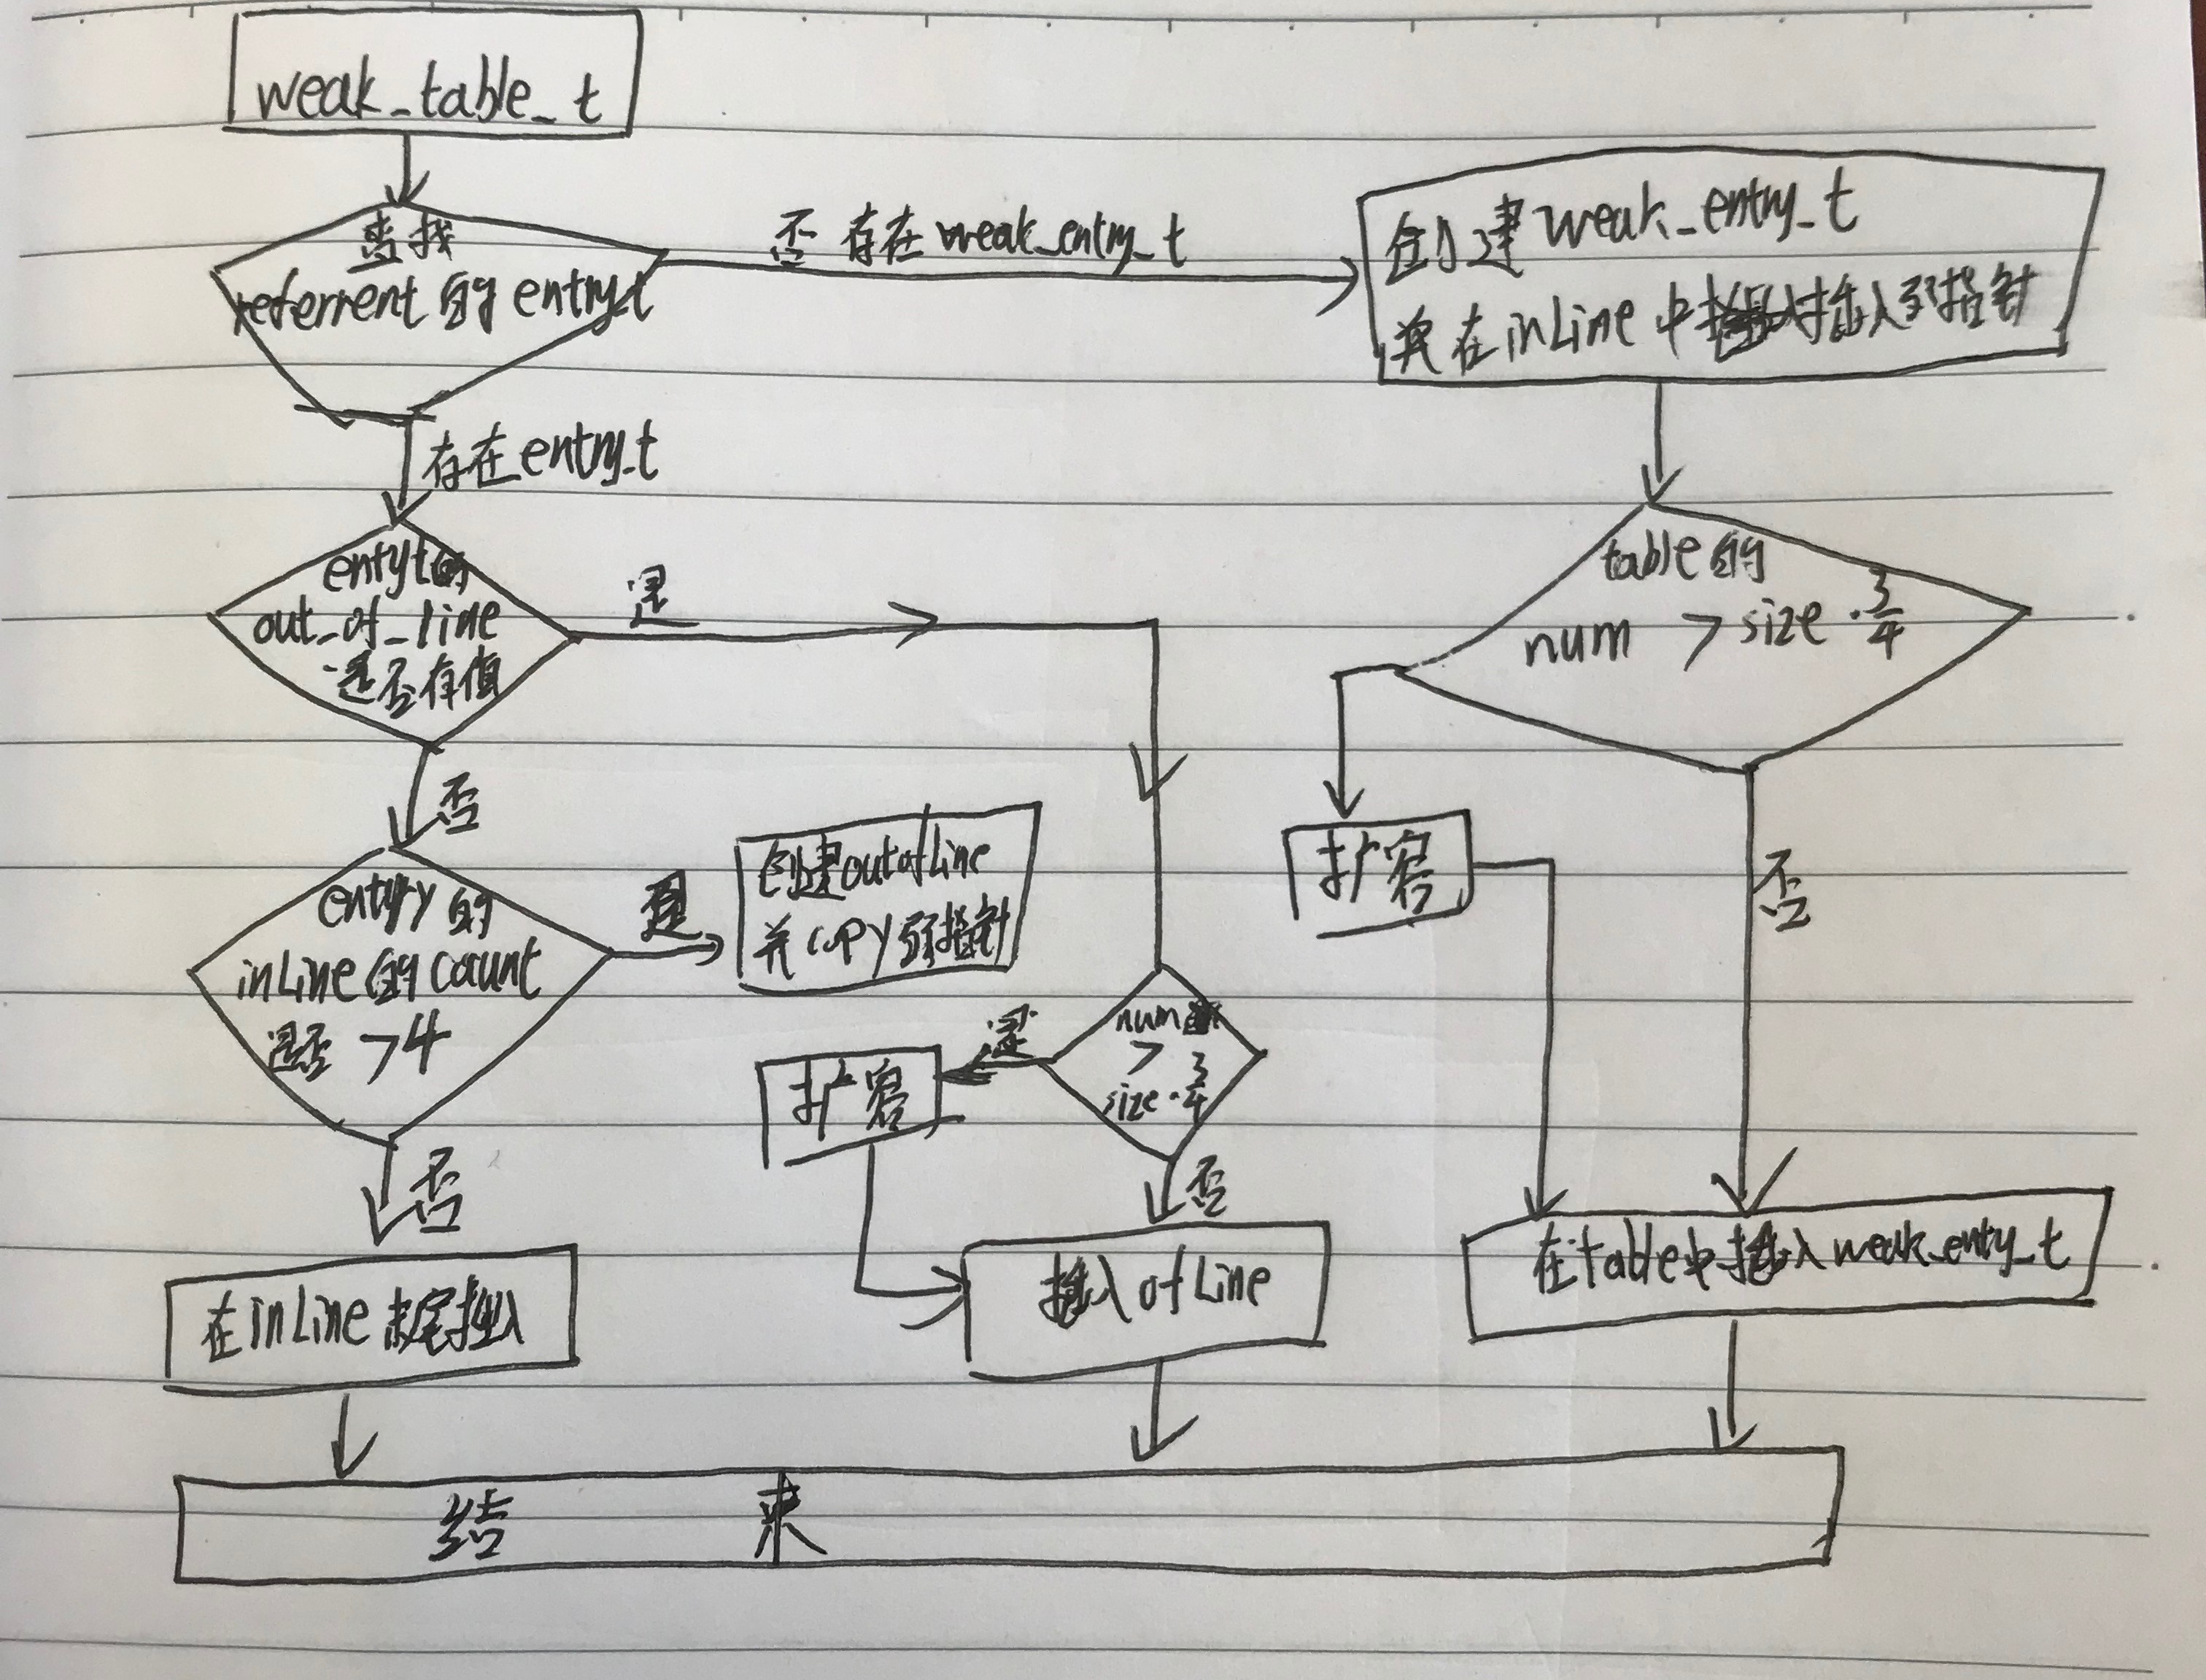 weak_table_t
查找
referrent的entry_t
否 存在weak_entry_t
创建weak_entry_t
并在inLine中插入弱指针
存在entry_t
entyt的
out_of_line
是否有值
是
table的
num > size·3/4
否
entyry的
inLine的count
是否 >4
是
创建outofLine
并copy弱指针
扩容
否
num
>
size·3/4
是
扩容
否
否
在inLine末尾插入
插入ofLine
在table中插入weak_enty_t
结 束